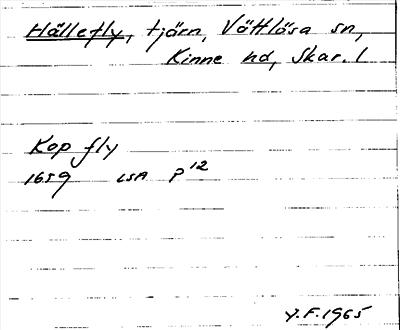 Hällefly, tjärn, Vättlösa sn,
Kinne hd, Skar. l
Kop fly
1659 LSA P 12
Y.F. 1965